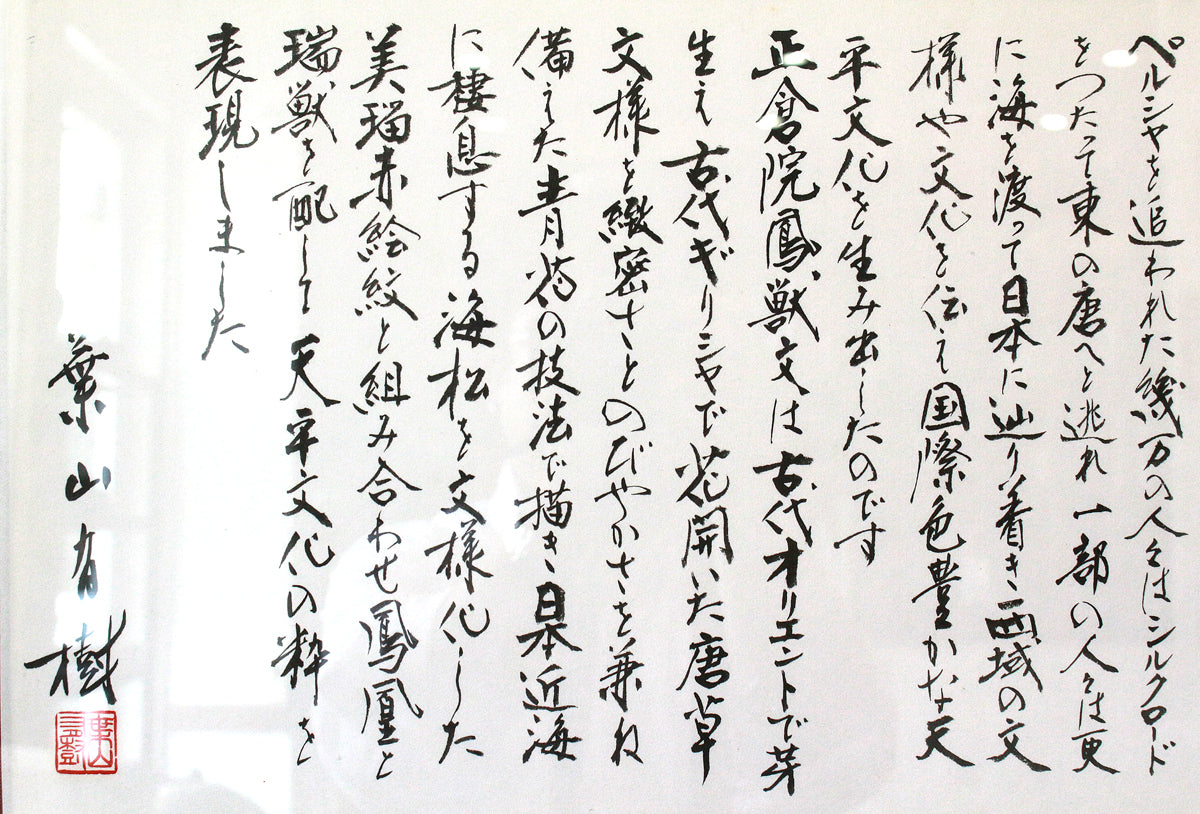 ペルシャを追われた幾万の人々はシルクロード
をつたって東の唐へと逃れ一部の人々は更
に海を渡って日本に辿り着き西域の文
様や文化を伝え国際色豊かな天
平文化を生み出したのです
正倉院鳳獣文は古代オリエントで芽
生え古代ギリシャで花開いた唐草
文様を緻密さとのびやかさを兼ね
備えた青花の技法で描き日本近海
に棲息する海松を文様化した
美瑠赤絵紋と組み合わせ鳳凰と
瑞獣を配して天平文化の粋を
表現しました
葉山有樹